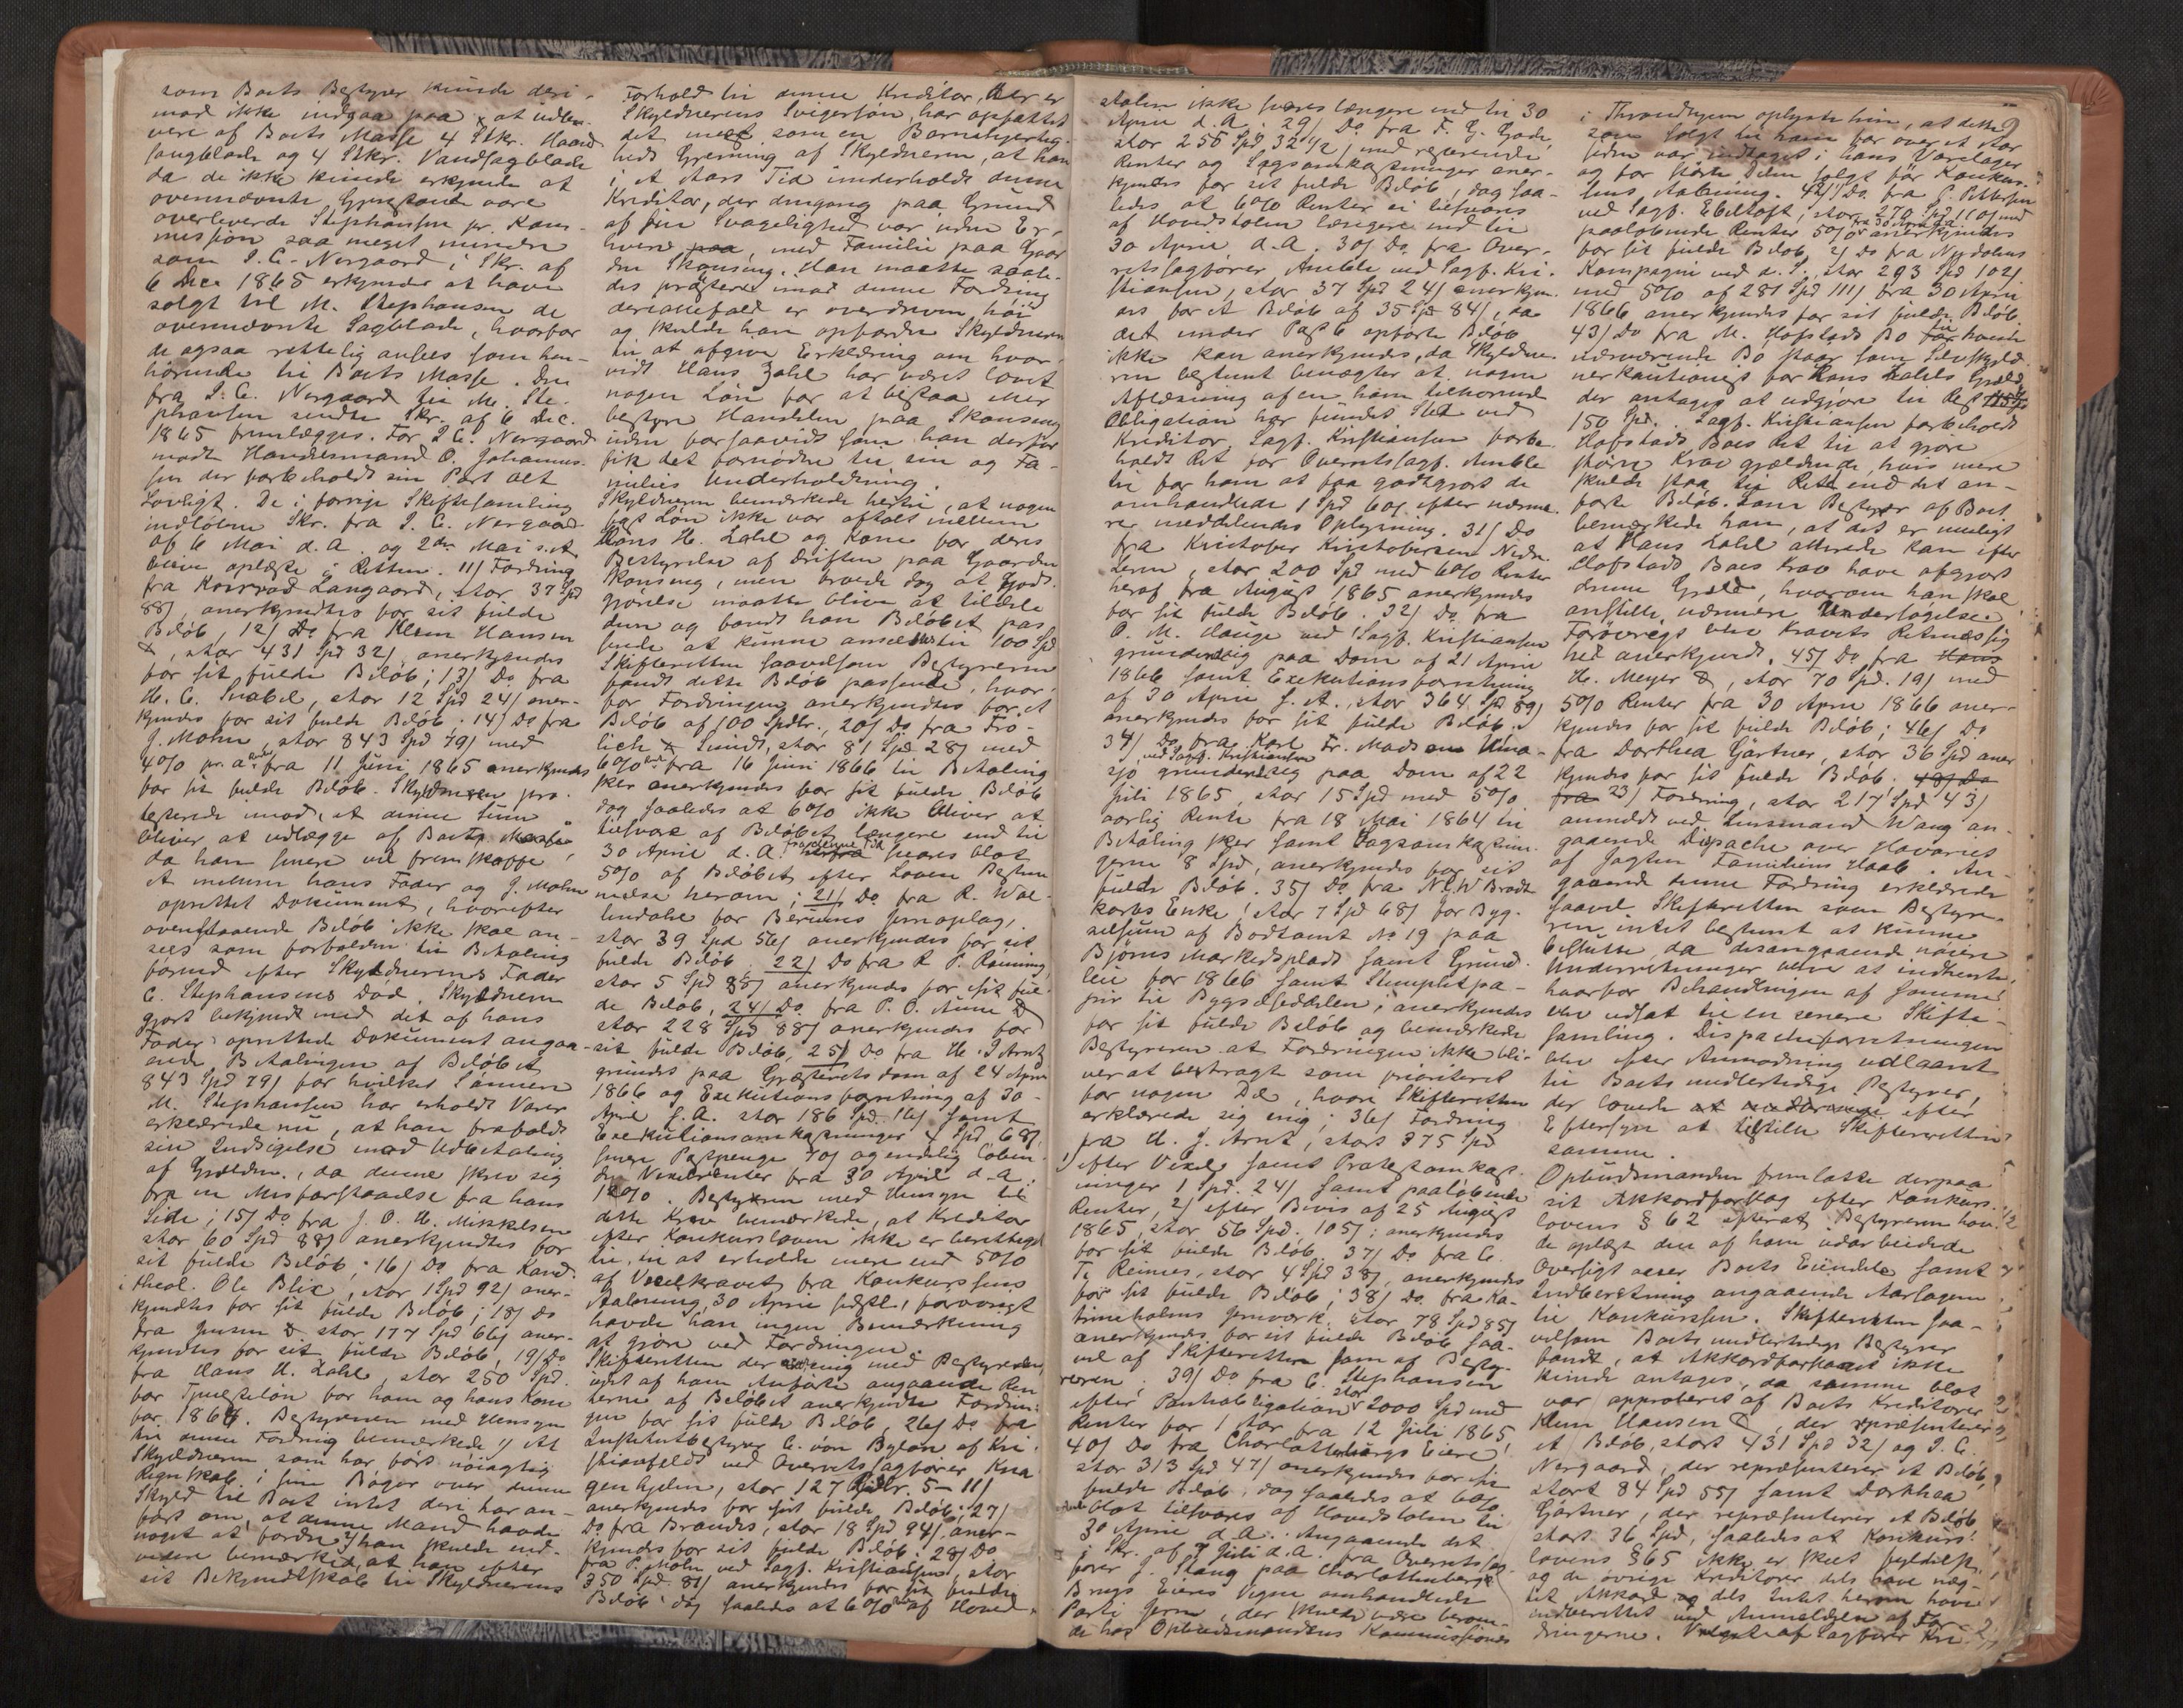 som Boets Bestyrer kunde deri-
mod ikke indgaa paa at udle-
vere af Boets Masse 4 Stkr. Haand
saugblade og 4 Stkr. Vandsagblade
da de ikke kunde erkjende at
ovennævnte Gjenstande vare
overleverde Stephansen pr. Kom-
mission saa meget mindre
som I. C. Norgaard i Skr. af
6 Dec. 1865 erkjender at have
solgt til M. Stephansen de
ovennævnte Sagblade, hvorfor
de ogsaa rettelig ansees som hen-
hørende til Boets Masse. Den
fra I. C. Norgaard til M. Ste-
phansen sendte Skr. af 6 Dec.
1865 fremlægges. For I. C. Norgaard
mødte Handelsmand O. Johannes-
sen der forbeholdt sin Part Alt
Lovligt. De i forrige Skiftesamling
indløbne Skr. fra I. C. Norgaard
af 6 Mai d.A. og 2den Mai s.A.
bleve oplæste i Retten. 11/ Fordring
fra Konrad Langaard, stor 37 Spd
88/, anerkjendtes for sit fulde
Beløb, 12/ Do fra Klem Hansen
&, stor 431 Spd 32/ anerkjendes
for sit fulde Beløb; 13/ Do fra
H. C. Snabel, stor 12 Spd 24/ aner-
kjendes for sit fulde Beløb. 14/ Do fra
J. Mohn, stor 843 Spd 79/ med
4% pr. a fra 11 Juni 1865 anerkjendes
for sit fulde Beløb. Skyldneren pro-
testerede imod, at denne Sum
bliver at udlægge af Boets Masse
da han senere vil fremskaffe
et mellem hans Fader og J. Mohn
oprettet Dokument, hvorefter
ovenstaaende Beløb ikke skal an-
sees som forfalden til Betaling
førend efter Skyldnerens Fader
C. Stephansens Død. Skyldneren
gjort bekjendt med det af hans
Fader oprettede Dokument angaa-
ende Betalingen af Beløbet
843 Spd 79/ for hvilket Sønnen
M. Stephansen har erholdt Varer
erklærede nu, at han frafaldt
sin Indsigelse mod Udbetaling
af Gjælden, da denne skrev sig
fra en Misforstaaelse fra hans
Side; 15/ Do fra J. O. H. Mikkelsen
stor 60 Spd 88/ anerkjendtes for
sit fulde Beløb; 16/ Do fra Kand.
theol. Ole Blix, stor 1 Spd 92/ aner-
kjendtes for sit fulde Beløb; 18/ Do
fra Jensen & stor 177 Spd 66/ aner-
kjendtes for sit fulde Beløb, 19/ Do
fra Hans H. Zahl, stor 250 Spd.
for Tjenesteløn for ham og hans Kone
for 1864. Bestyreren med Hensyn
til denne Fordring bemærkede 1/ At
Skyldneren som har ført nøiagtig
Regnskab i sine Bøger over denne
Skyld til Boet intet deri har an-
ført om, at denne Mand havde
noget at fordre 2/ han skulde end-
videre bemærke, at han efter
sit Bekjendtskab til Skyldnerens
Forhold til denne Kreditor, der er
Skyldnerens Svigersøn, har opfattet
det mest som en Barmhjertig-
heds Gjerning af Skyldneren, at han
i et Aars Tid underholdt denne
Kreditor, der dengang paa Grund
af sin Svagelighed var uden Er-
hverv paa, med Familie paa Gaar
den Skonseng. Han maatte saale-
des protestere imod denne Fordring
der iallefald er overdreven høi
og skulde han opfordre Skyldneren
til at afgive Erklæring om hvor-
vidt Hans Zahl har været lovet
nogen Løn for at bestaa eller
bestyre Handelen paa Skonseng
uden forsaavidt som han derfor
fik det fornødne til sin og Fa-
milies Underholdning.
Skyldneren bemærkede hertil, at nogen
vis Løn ikke var aftalt mellem
Hans H. Zahl og Kone for deres
Bestyrelse af Driften paa Gaarden
Skonseng, men troede dog at Godt-
gjørelse maatte blive at tildele
dem og fandt han Beløbet pas
sende at kunne ansættes til 100 Spd
Skifteretten saavelsom Bestyreren
fandt dette Beløb passende, hvor-
for Fordringen anerkjendes for et
Beløb af 100 Spdlr., 20/ Do fra Frø-
lich & Smidt, stor 81 Spd 28/ med
6% fra 16 Juni 1866 til Betaling
sker anerkjendes for sit fulde Beløb
dog saaledes at 6% ikke bliver at
tilsvare af Beløbet længere end til
30 April d.A. fra denne Tid svares blot
5% af Beløbet efter Lovens Bestem
melse herom; 21/ Do fra R. Wal-
lendahl for Berums Jernoplag,
stor 39 Spd 56/ anerkjendes for sit
fulde Beløb. 22/ Do fra R. P. Ranning
stor 5 Spd 85/ anerkjendes for sit ful-
de Beløb, 24/ Do fra P. O. Aune &
stor 228 Spd 88/ anerkjendes for
sit fulde Beløb, 25/ Do fra H. J. Arntz
grundet paa Gjæsterets dom af 24 April
1866 og Exekutionsforretning af 30-
April s.A. stor 186 Spd. 16/ samt
Exekutionsomkostninger 4 Spd 68/
senere Postpenge 70/ og endelig løben-
de Vexelrenter fra 30 April d.A.
12%. Bestyreren med Hensyn til
dette Krav bemærkede, at Kreditor
efter Konkursloven ikke er berettiget
til at erholde mere end 5%
af Vexelkravet fra Konkurssens
Aabning, 30 April sidstl., forøvrigt
havde han ingen Bemærkning
at gjøre ved Fordringen.
Skifteretten der var enig med Bestyreren
i det af ham Anførte angaaende Ren
terne af Beløbet anerkjendte Fordrin-
gen for sit fulde Beløb, 26/ Do fra
Institutbestyrer C. von Bylon af Kri-
stiansfeldt ved Overretssagfører Kna-
genhjelm, stor 127 Rdlr. 5-11/
anerkjendes for sit fulde Beløb; 27/
Do fra Brandes, stor 18 Spd 94/, aner-
kjendes for sit fulde Beløb. 28/ Do
fra P. Mohn ved Sagf. Kristiansen, stor
350 Spd. 81/ anerkjendes for sit fulde
Beløb dog saaledes at 6% af Hoved-
stolen ikke svares længere end til 30
April d.A. 29/ Do fra F. G. Gade,
stor 255 Spd 32 1/2/ med reserverende
Renter og Sagsomkostninger aner-
kjendes for sit fulde Beløb, dog saa-
ledes at 6% Renter ei tilsvares
af Hovedstolen længere end til
30 April d.A. 30/ Do fra Over-
retssagfører Amble ved Sagf. Kri-
stiansen, stor 37 Spd 24/ anerkjen-
des for et Beløb af 35 Spd 84/, da
det under Post 6 opførte Beløb
ikke kan anerkjendes, da Skyldne-
ren bestemt benægter at nogen
Aflæsning af en ham tilhørende
Obligation har fundet Sted ved
Kreditor. Sagf. Kristiansen forbe-
holdt Ret for Overretssagf. Amble
til for ham at faa godtgjort de
omhandlede 1 Spd 60/ efter nærme-
re meddelendes Oplysning. 31/ Do
fra Kristofer Kristofersen Nedre
Leren, stor 200 Spd med 6% Renter
heraf fra August 1865 anerkjendes
for sit fulde Beløb. 32/ Do fra
O. M. Hauge ved Sagf. Kristiansen
grundet sig paa Dom af 21 April
1866 samt Exekutionsforretning
af 30 April s.A., stor 364 Spd 89/
anerkjendes for sit fulde Beløb.
34/ Do fra Karl Fr. Madsen
ved Sagf. Kristiansen
grundet sig paa Dom af 22
Juli 1865, stor 15 Spd med 5%
aarlig Rente fra 18 Mai 1864 til
Betaling sker samt Sagsomkostnin-
gerne 8 Spd, anerkjendes for sit
fulde Beløb. 35/ Do fra N. C. W Brodt
korbs Enke, stor 7 Spd 68/ for Byg-
selsum af Bodtomt No 19 paa
Bjørns Markedsplads samt Grund-
leie for 1866 samt Stempletpa-
pir til Bygselsedelen, anerkjendes
for sit fulde Beløb og bemærkede
Bestyreren at Fordringen ikke bli-
ver at betragte som prioriteret
for nogen Del, hvori Skifteretten
erklærede sig enig; 36/ Fordring
fra H. J. Arntz, stor 375 Spd
1/ efter Vexel samt Protestomkost-
ninger 1 Spd. 24/ samt paaløbende
Renter, 2/ efter Bevis af 25 August
1865, stor 56 Spd. 105/; anerkjendes
for sit fulde Beløb. 37/ Do fra C.
T. Reimers, stor 4 Spd 38/, anerkjendes
for sit fulde Beløb; 38/ Do. fra Ka-
trineholms Jernverk, stor 78 Spd 85/
anerkjendes for sit fulde Beløb saa-
vel af Skifteretten som af Besty-
reren. 39/ Do fra C. Stephansen
efter Pantobligation stor 2000 Spd med
Renter for 1 Aar fra 12 Juli 1865,
40/ Do fra Charlottenbergs Eiere
stor 313 Spd 47/ anerkjendes for sit
fulde Beløb, dog saaledes at 6%
blot tilsvares af Hovedstolen til
30 April d.A. Angaaende det
i Skr. af 7 Juli d.A. fra Overretssag-
fører J. Stang paa Charlottenbergs
Brugs Eieres Vegne omhandlede
Parti Jern, der skulde være beroen-
de hos Opbudsmandens Kommissionær
i Throndhjem oplyste han, at dette
som solgt til ham for over et Aar
siden var indtaget i hans Varelager
og for største Delen solgt før Konkur-
sens Aabning. 41/ Do. fra P. Pettersen
ved Sagf. Ebeltoft, stor 270 Spd 110/ med
paaløbende Renter 5% fra 30 April d.A. anerkjendes
for sit fulde Beløb. 42/ Do fra Nydalens
Kompagni ved d. S., stor 293 Spd 102/
med 5% af 281 Spd 111/ fra 30 April
1866 anerkjendes for sit fulde Beløb
43/ Do fra M. Hofstads Bo for til hvem
nærværende Bo staar som Selvskyld
nerkautionist for Hans Zahls Gjæld,
der antages at udgjøre til Rest
150 Spd. Sagf. Kristiansen forbeholdt
Hofstads Boes Ret til at gjøre
større Krav gjældende, hvis mere
skulde staa til Rest end det an-
førte Beløb. Som Bestyrer af Boet
bemærkede han, at det er muligt
at Hans Zahl allerede kan efter
Hofstads Boes Krav have afgjort
denne Gjæld, hvorom han skal
anstille nærmere Undersøgelse.
Forøvrigt blev Kravets Retmæssig
hed anerkjendt. 45/ Do fra Hans
H. Meyer &, stor 70 Spd. 19/ med
5% Renter fra 30 April 1866 aner-
kjendes for sit fulde Beløb; 46/ Do
fra Dorthea Gärtner, stor 36 Spd aner
kjendes for sit fulde Beløb. 48/ Do
fra 23/ Fordring, stor 217 Spd 43/
anmeldt ved Lensmand Wang an-
gaaende Dispache over Havariet
af Jagten Familiens Haab. An-
gaaende denne Fordring erklærede
saavel Skifteretten som Bestyre-
ren intet bestemt at kunne
beslutte, da desangaaende nøiere
Underretninger bliver at indhente,
hvorfor Behandlingen af samme
blev udsat til en senere Skifte-
samling. Dispacheforretningen
blev efter Anmodning udlaant
til Boets midlertidige Bestyrer,
der lovede at medbringe efter
Eftersyn at tilstille Skifteretten
samme.
Opbudsmanden fremsatte derpaa
sit Akkordforslag efter Konkurs-
lovens § 62 efterat Bestyreren hav-
de oplæst den af ham udarbeidede
Oversigt over Boets Eiendele samt
Indberetning angaaende Aarsagerne
til Konkurssen. Skifteretten saa-
velsom Boets midlertidige Bestyrer
fandt, at Akkordforslaget ikke
kunde antages, da samme blot
var approberet af Boets Kreditorer
Klem Hansen &, der repræsenterer
et Beløb, stort 431 Spd 32/ og I. C.
Norgaard, der repræsenterer et Beløb,
stort 84 Spd 55/ samt Dorthea
Gärtner, der repræsenterer et Beløb
stort 36 Spd, saaledes at Konkurs-
lovens § 65 ikke er skeet Fyldest,
og de øvrige Kreditorer dels have næg-
tet Akkord og dels Intet herom have
indberettet ved Anmeldelsen af For-
dringerne. Valgt af Sagfører Kri-